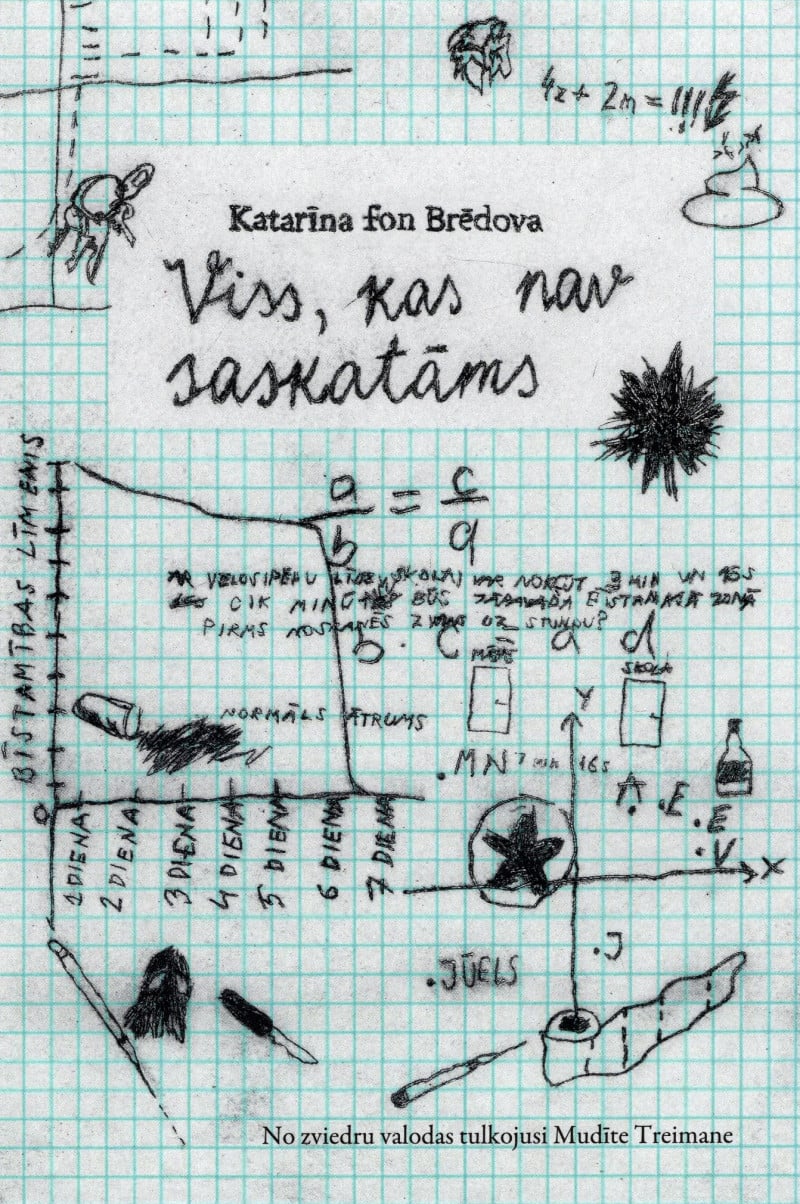 4x + 2m = !!!
Katarīna fon Brēdova
Viss, kas nav
saskatāms
BĪSTAMĪBAS LĪMENIS
a/b = c/d
AR VELOSIPĒDU LĪDZ SKOLAI VAR NOKĻŪT 3 MIN UN 16S
CIK BŪS ZONĀ
PIRMS UZ STUNDU?
b · c = a d
MĀJAS
SKOLA
NORMĀLS ĀTRUMS
Y
MN 7 min 16s
A
E
E
V
X
0
1 DIENA
2 DIENA
3 DIENA
4 DIENA
5 DIENA
6 DIENA
7 DIENA
J
JŪELS
No zviedru valodas tulkojusi Mudīte Treimane